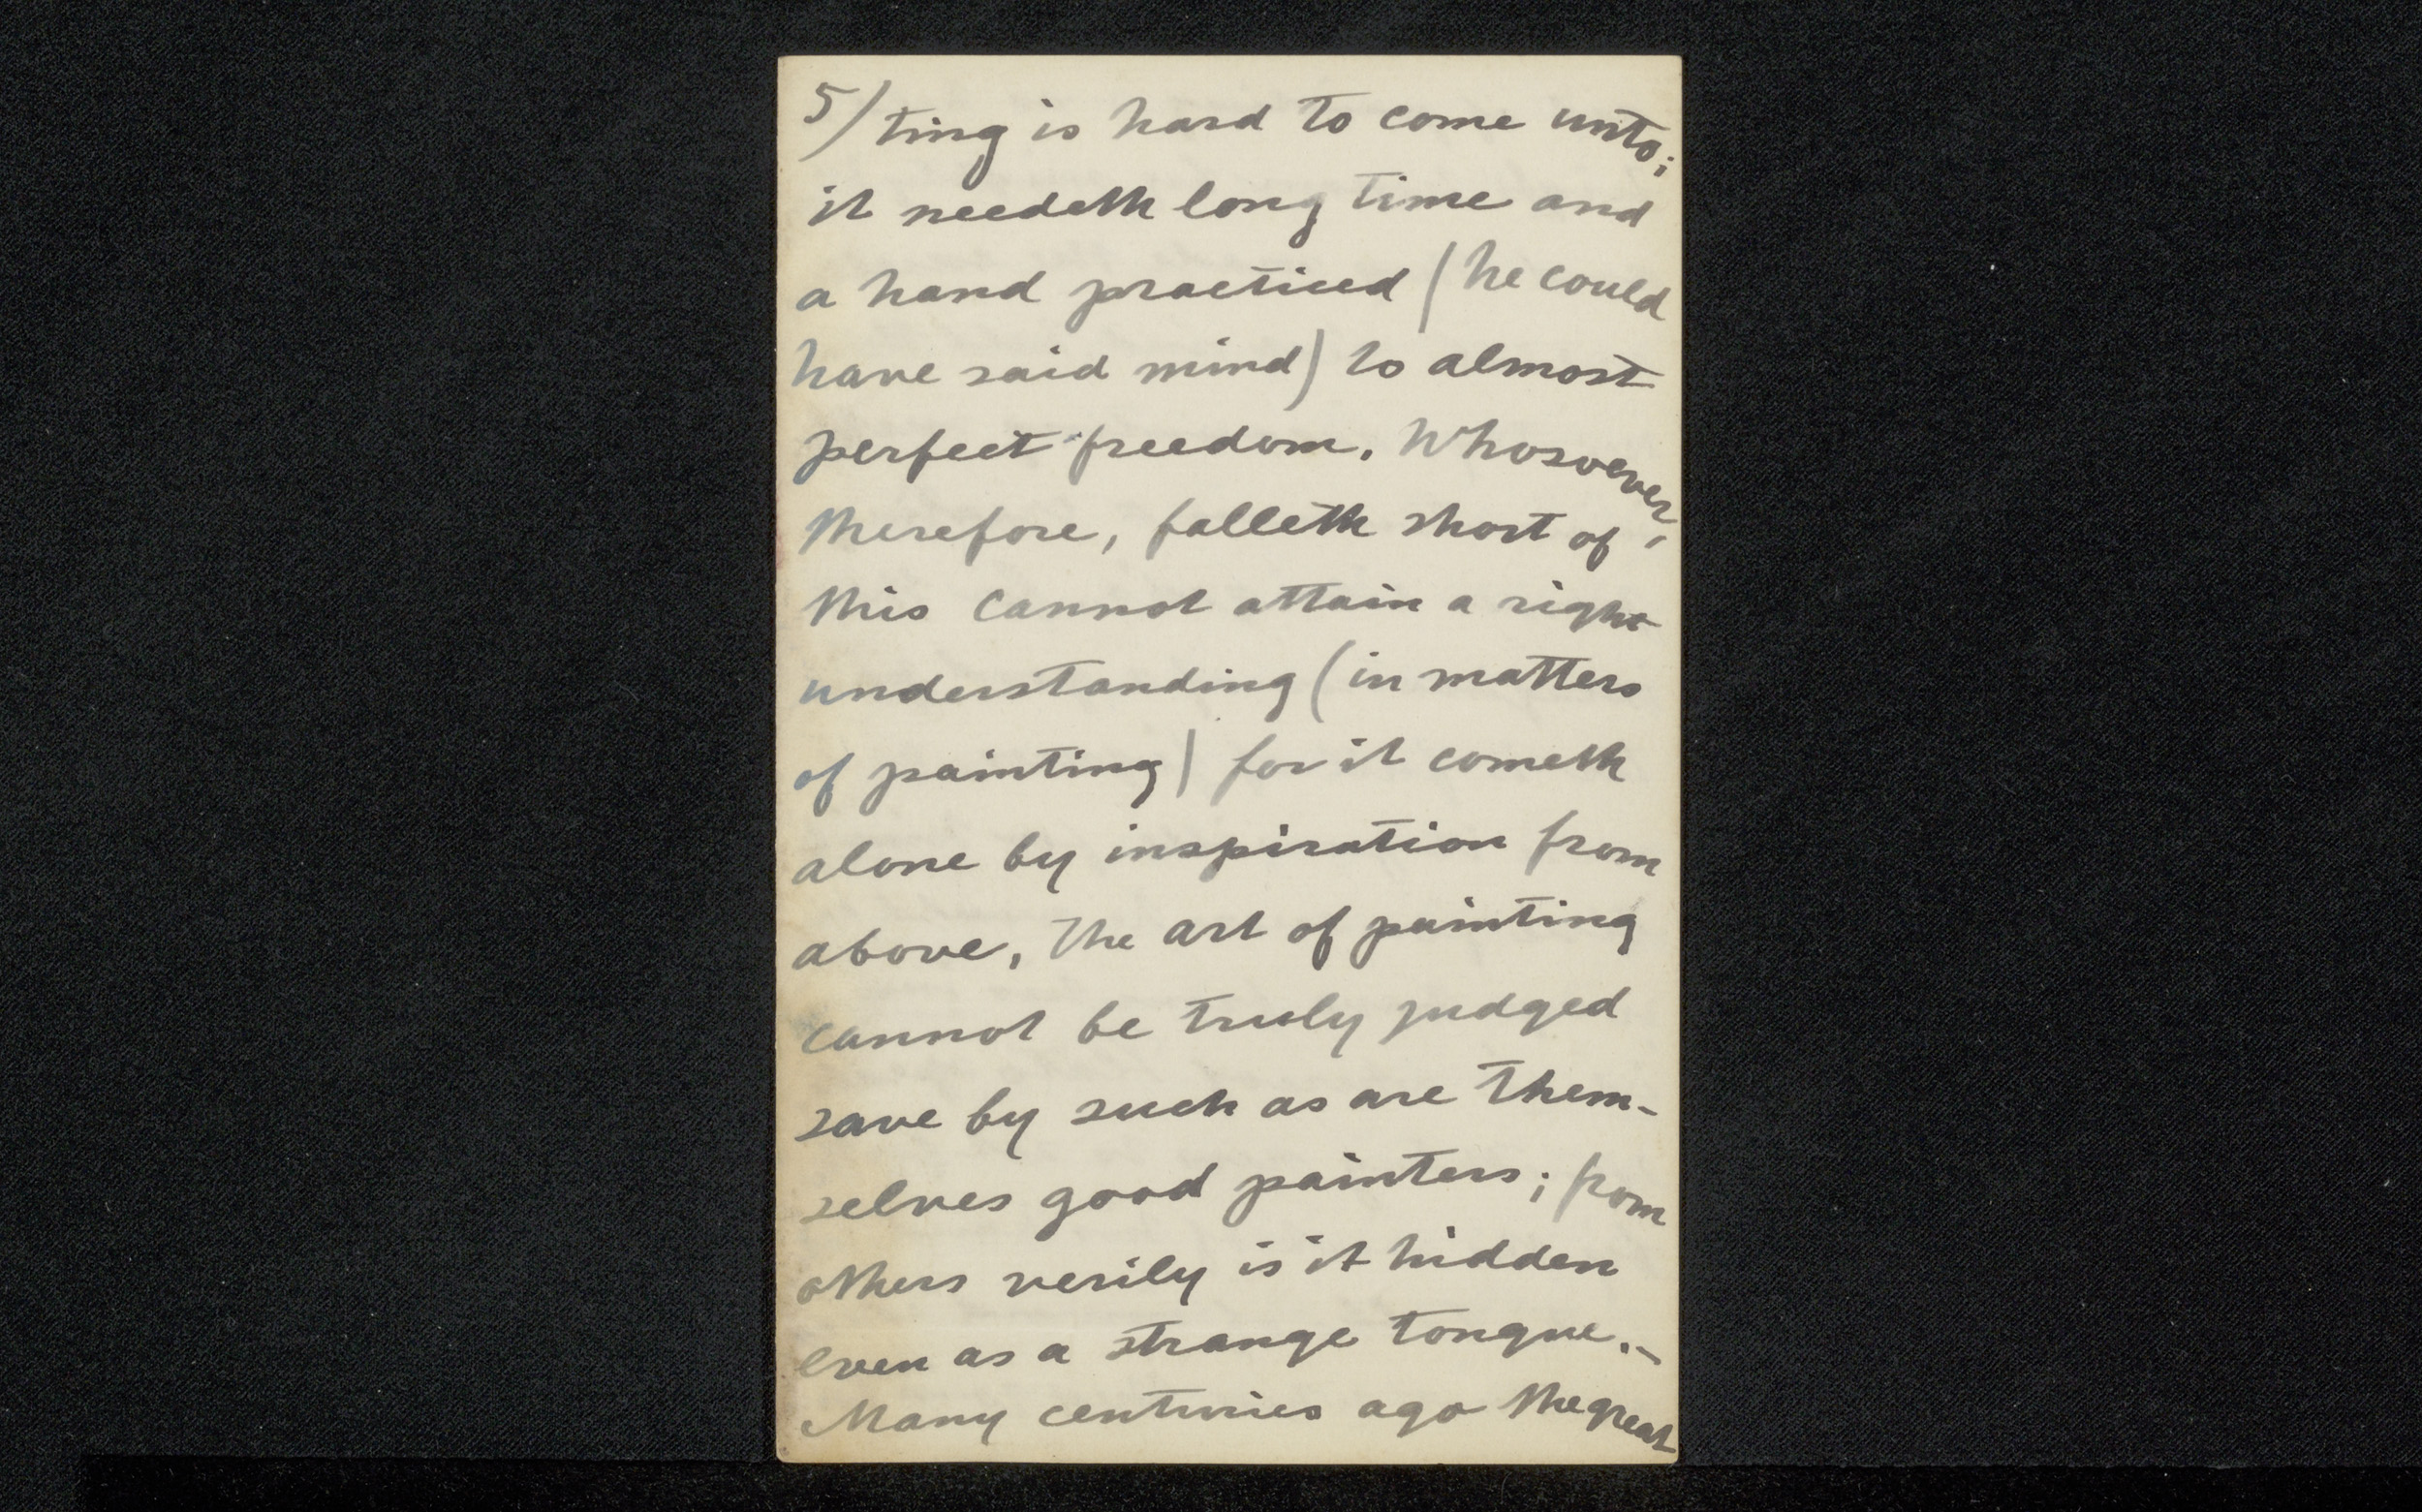 5/ ting is hard to come unto;
it needeth long time and
a hand practiced (he could
have said mind) to almost
perfect freedom. Whosoever,
therefore, falleth short of
this cannot attain a right
understanding (in matters
of painting) for it cometh
alone by inspiration from
above. The art of painting
cannot be truly judged
save by such as are them-
selves good painters; from
others verily is it hidden
even as a strange tongue.–
Many centuries ago the great